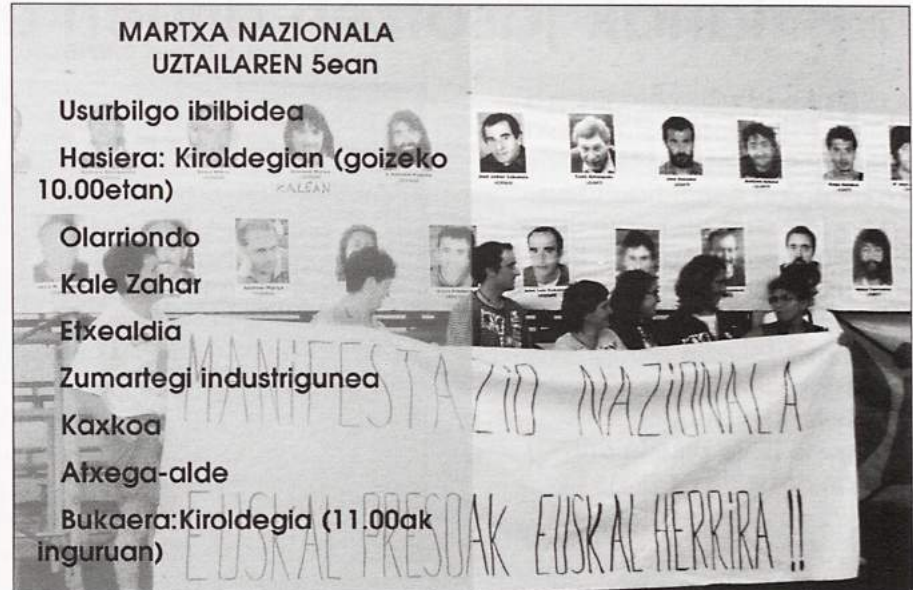 MARTXA NAZIONALA
UZTAILAREN 5ean
Usurbilgo ibilbidea
Hasiera: Kiroldegian (goizeko
10.00etan)
KALEAN
Olarriondo
Kale Zahar
Etxealdia
Zumartegi industrigunea
Kaxkoa
Atxega-alde
Bukaera:Kiroldegia (11.00ak
inguruan)
MANIFESTAZIO NAZIONALA
EUSKAL PRESOAK EUSKAL HERRIRA !!